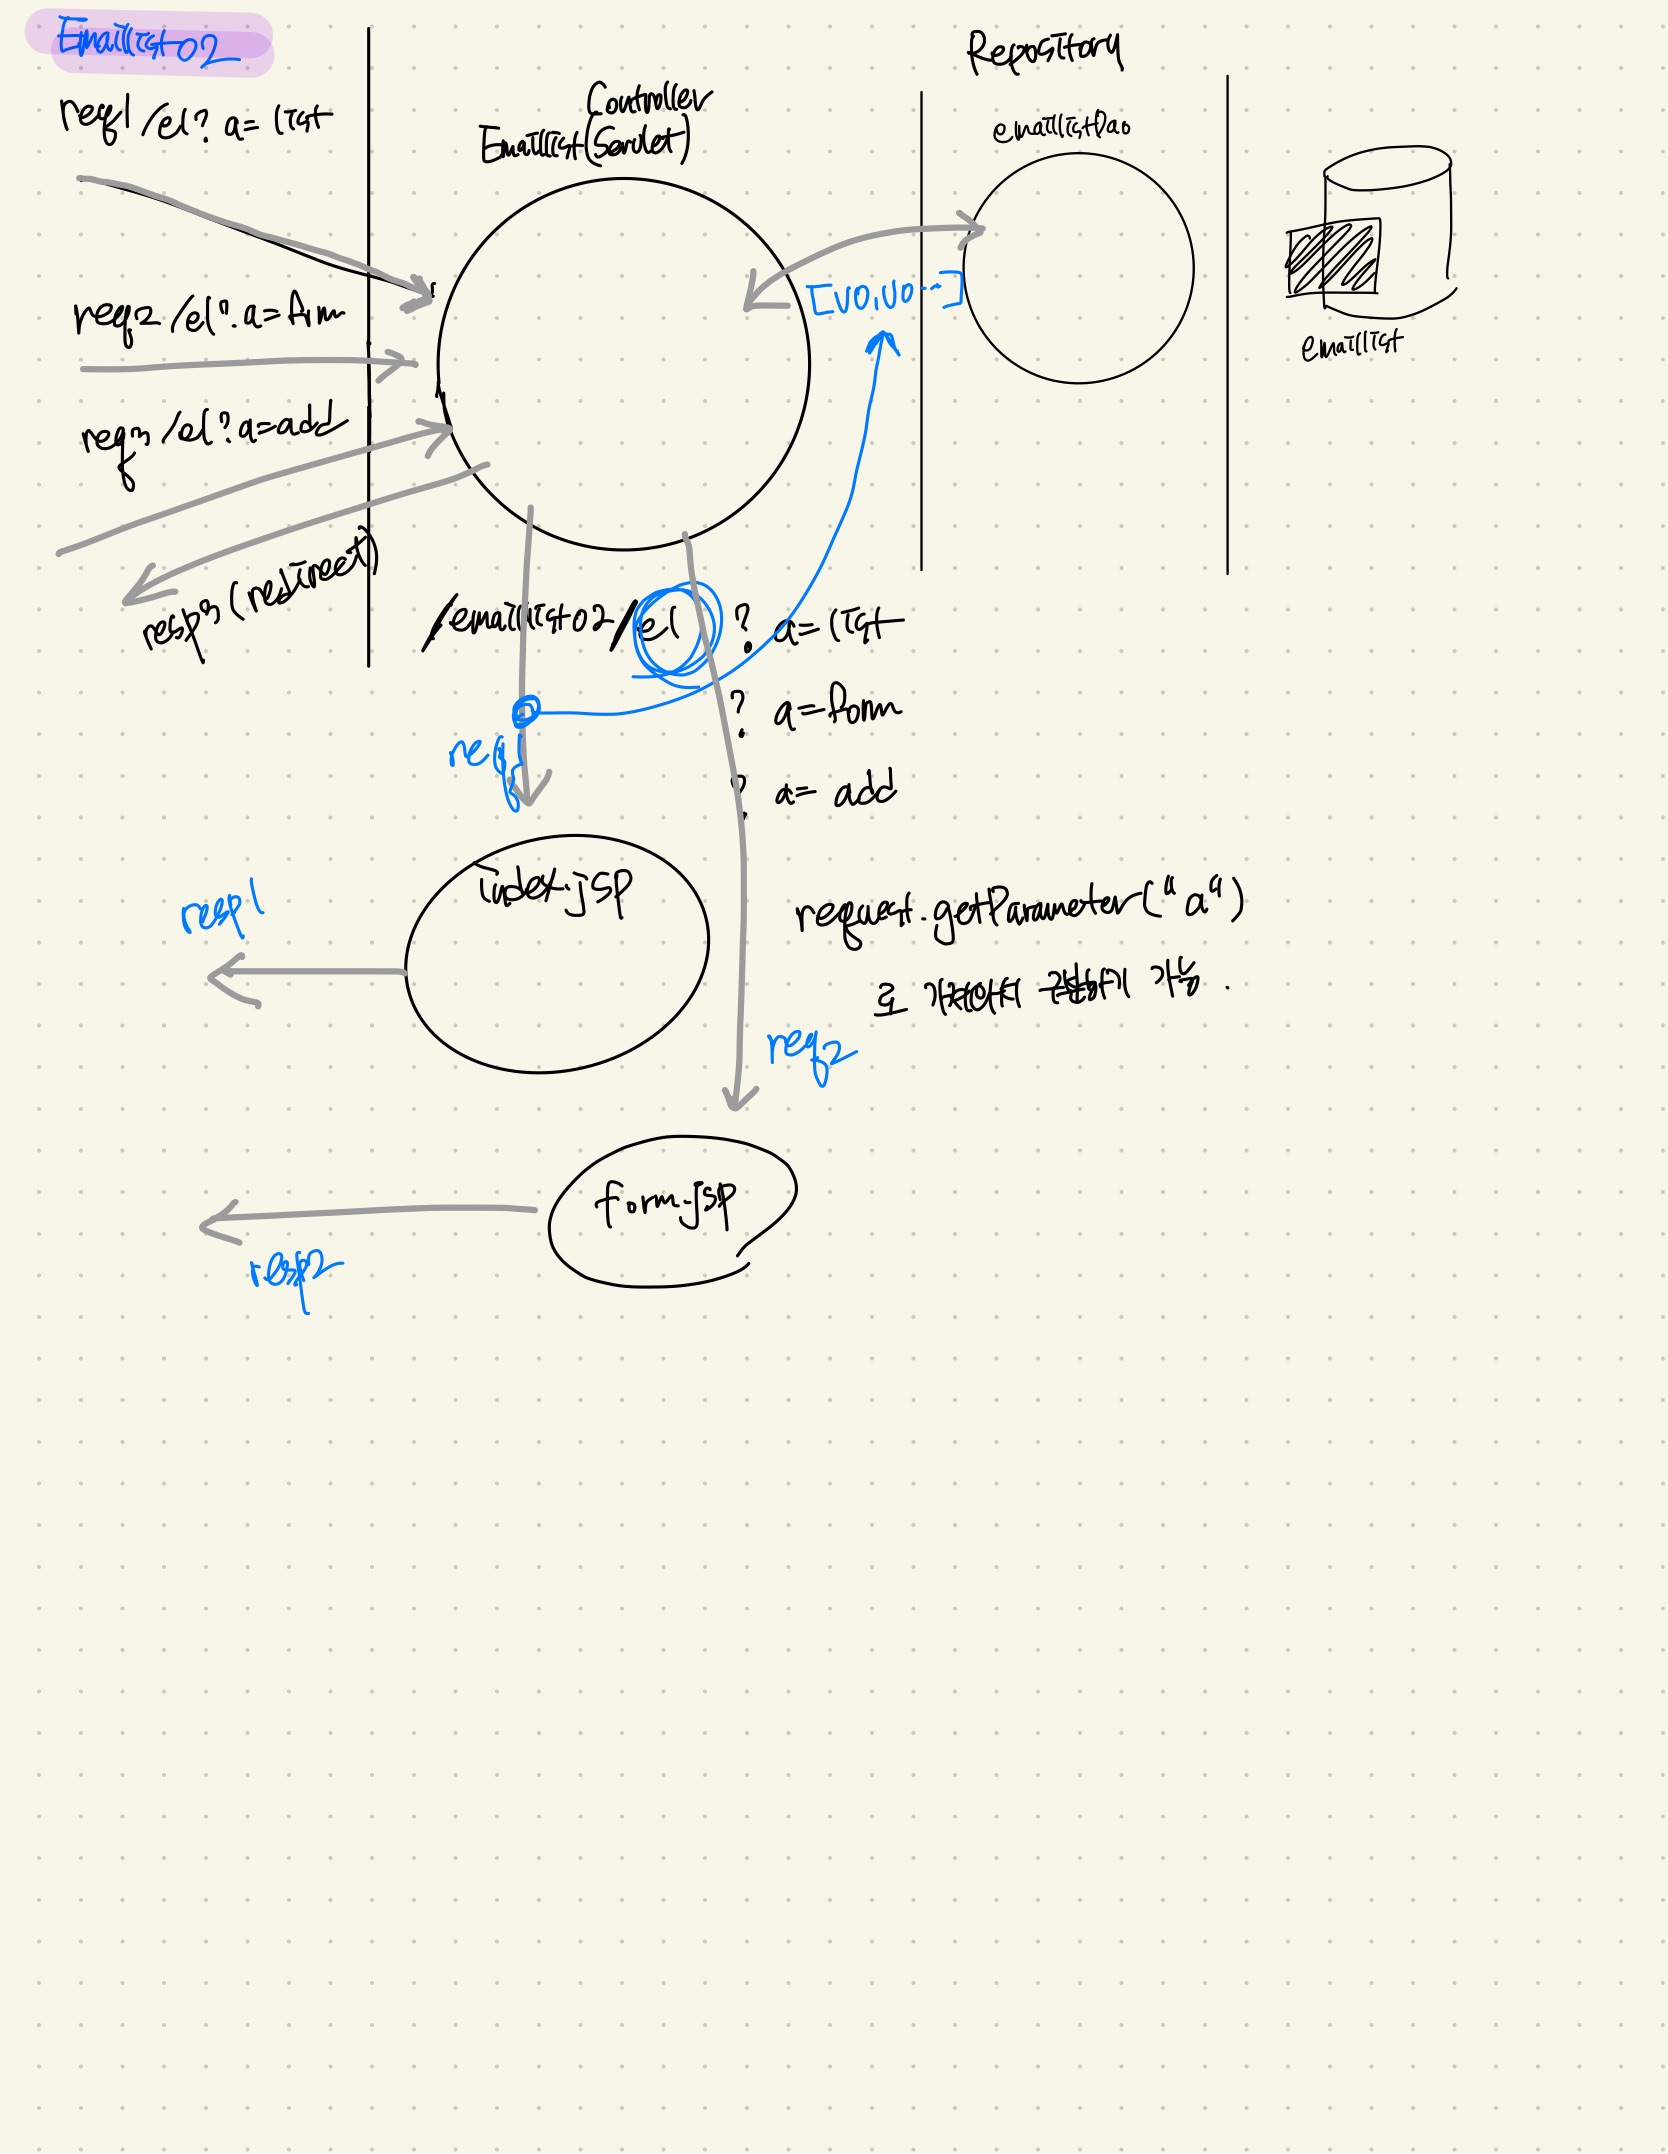 Emaillist02
req1 /el? a=list
req2 /el?a=form
req3 /el?a=add
resp3 (redirect)
Controller
Emaillist(Servlet)
Repository
emaillistDao
[vo,vo--]
emaillist
/emaillist02/el ? a=list
? a=form
? a= add
req1
index.jsp
resp1
request.getParameter("a")
로 가져와서 구분하기 가능.
req2
form.jsp
resp2